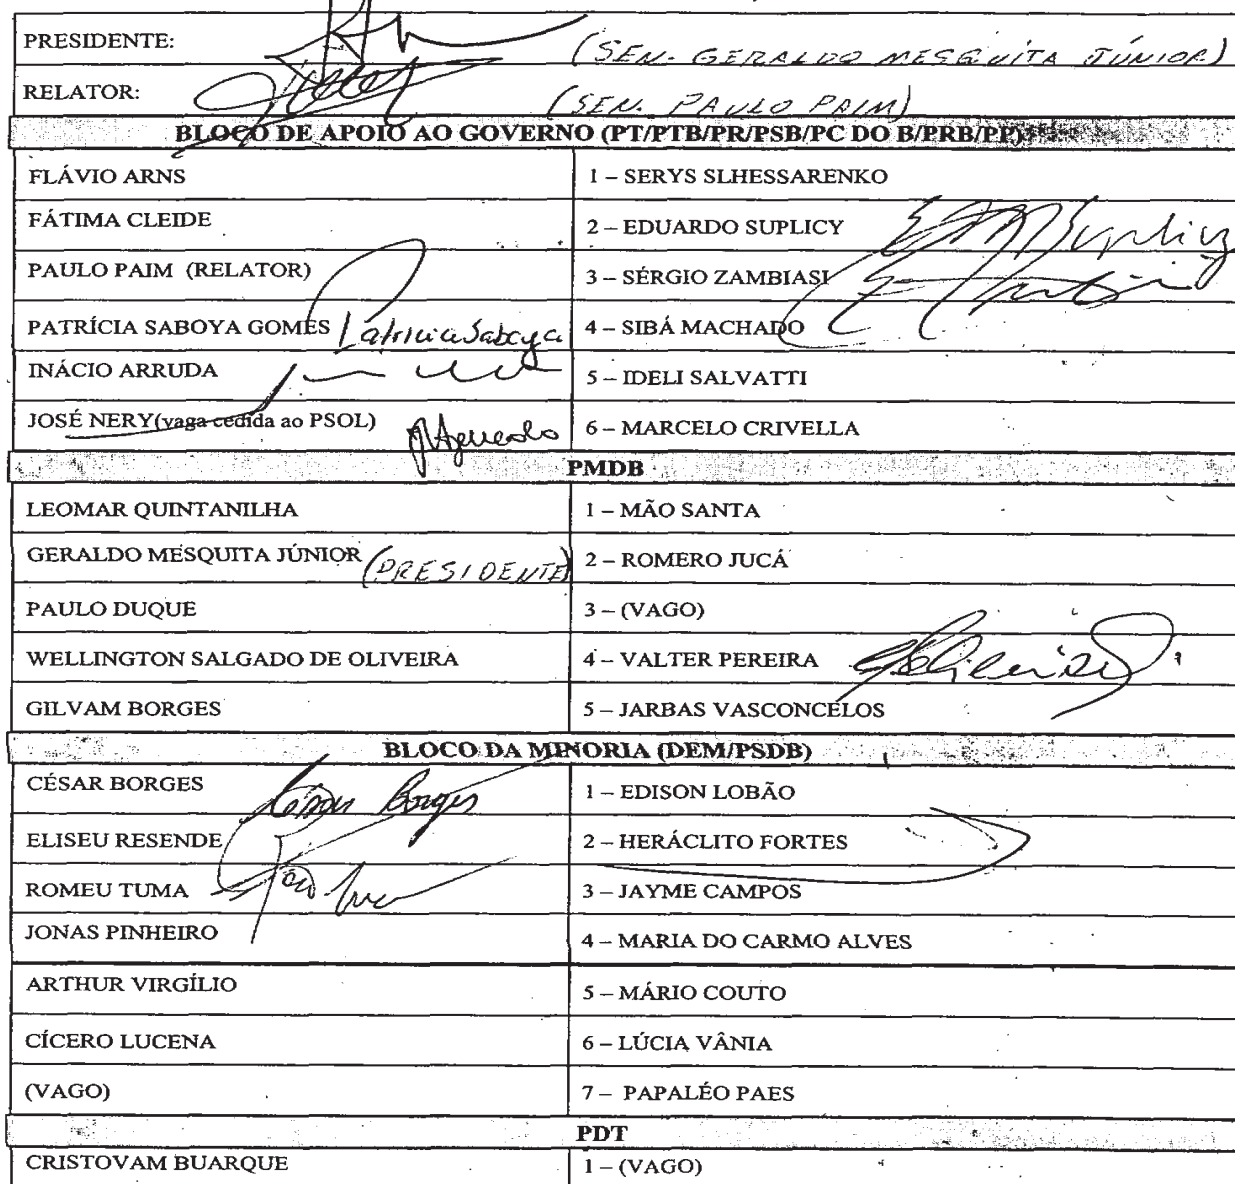 PRESIDENTE: (SEN. GERALDO MESQUITA JÚNIOR)
RELATOR: (SEN. PAULO PAIM)
BLOCO DE APOIO AO GOVERNO (PT/PTB/PR/PSB/PC DO B/PRB/PP)
FLÁVIO ARNS 1 – SERYS SLHESSARENKO
FÁTIMA CLEIDE 2 – EDUARDO SUPLICY Suplicy
PAULO PAIM (RELATOR) 3 – SÉRGIO ZAMBIASI
PATRÍCIA SABOYA GOMES Patricia Saboya 4 – SIBÁ MACHADO
INÁCIO ARRUDA 5 – IDELI SALVATTI
JOSÉ NERY(vaga cedida ao PSOL) 6 – MARCELO CRIVELLA
PMDB
LEOMAR QUINTANILHA 1 – MÃO SANTA
GERALDO MESQUITA JÚNIOR (PRESIDENTE) 2 – ROMERO JUCÁ
PAULO DUQUE 3 – (VAGO)
WELLINGTON SALGADO DE OLIVEIRA 4 – VALTER PEREIRA
GILVAM BORGES 5 – JARBAS VASCONCELOS
BLOCO DA MINORIA (DEM/PSDB)
CÉSAR BORGES César Borges 1 – EDISON LOBÃO
ELISEU RESENDE 2 – HERÁCLITO FORTES
ROMEU TUMA 3 – JAYME CAMPOS
JONAS PINHEIRO 4 – MARIA DO CARMO ALVES
ARTHUR VIRGÍLIO 5 – MÁRIO COUTO
CÍCERO LUCENA 6 – LÚCIA VÂNIA
(VAGO) 7 – PAPALÉO PAES
PDT
CRISTOVAM BUARQUE 1 – (VAGO)